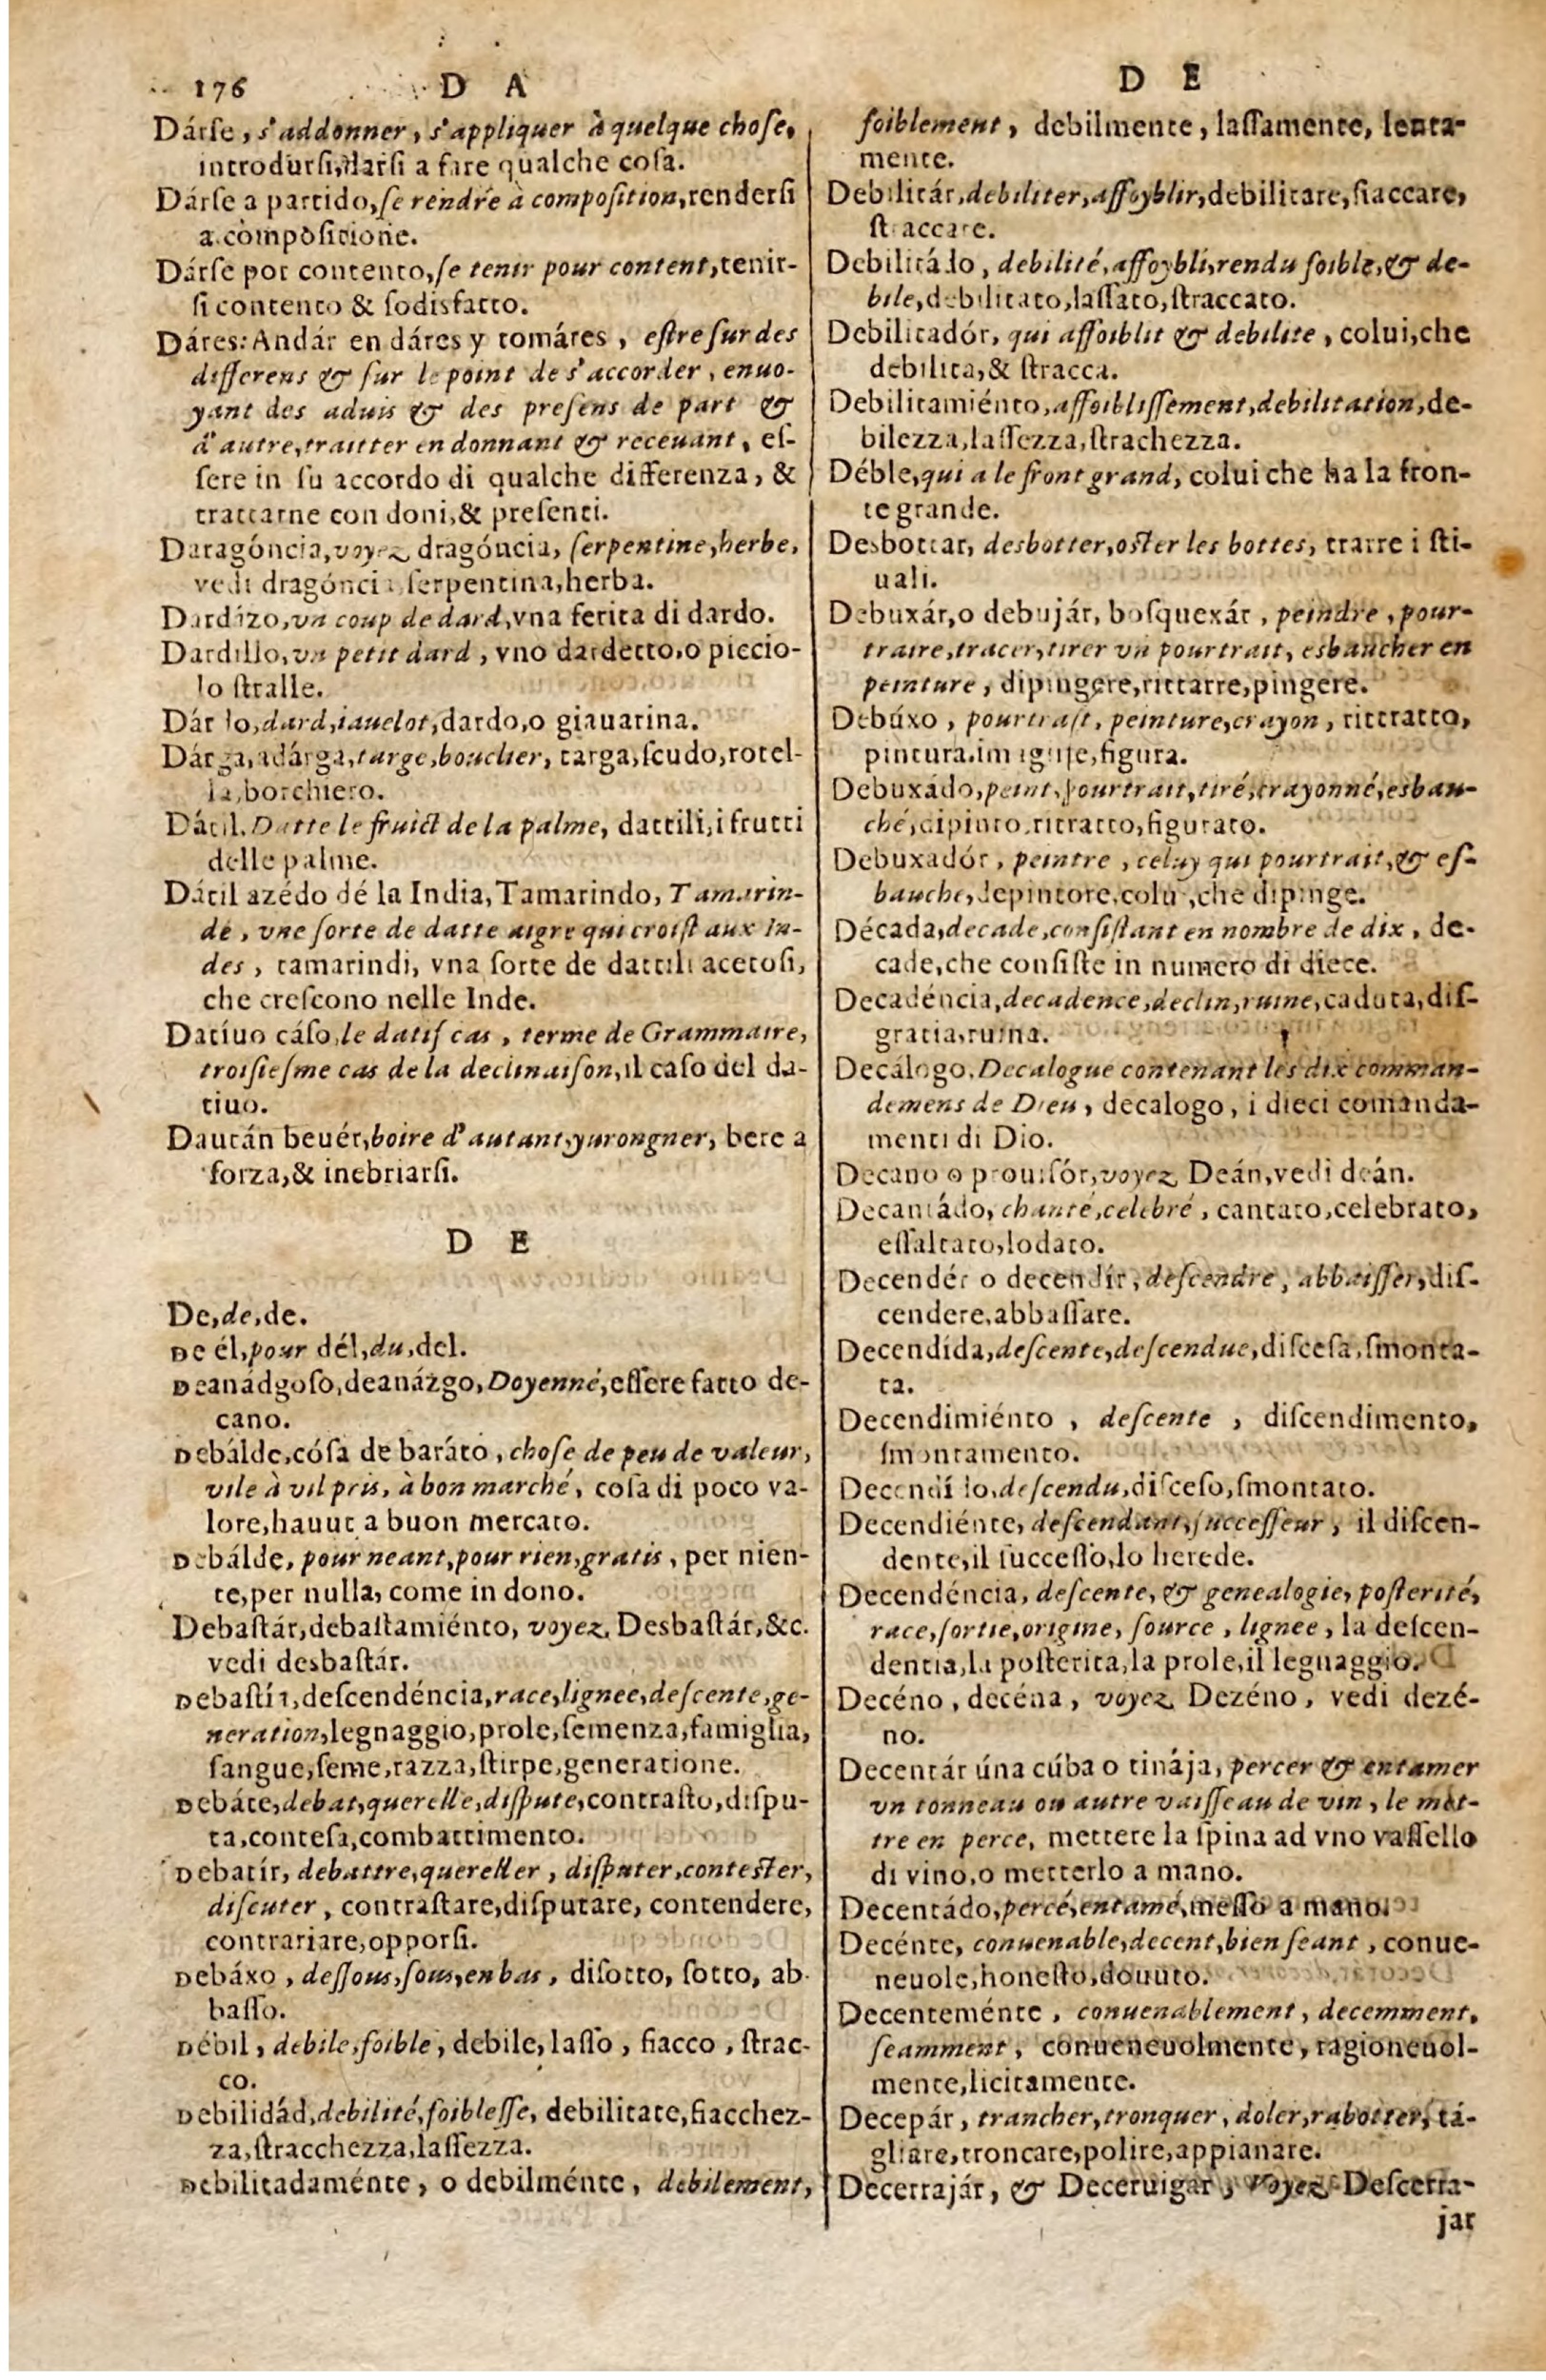 176 D A
Dárse, s'addonner, s'appliquer à quelque chose,
introdursi, darsi a fare qualche cosa.
Dárse a partido, se rendre à composition, rendersi
a composicione.
Dárse por contento, se tenir pour content, tenir-
si contento & sodisfatto.
Dáres: Andár en dáres y tomáres, estre sur des
differens & sur le point de s'accorder, enuo-
yant des aduis & des presens de part &
d'autre, traitter en donnant & receuant, es-
sere in su accordo di qualche differenza, &
trattarne con doni, & presenti.
Daragóncia, voyez dragóucia, serpentine, herbe,
vedi dragóncia serpentina, herba.
Dardázo, vn coup de dard, vna ferita di dardo.
Dardillo, vn petit dard, vno dardetto, o piccio-
lo stralle.
Dárdo, dard, iauelot, dardo, o giauarina.
Dárga, adárga, targe, bouclier, targa, scudo, rotel-
la, borchiero.
Dátil. Datte le fruict de la palme, dattili, i frutti
delle palme.
Dátil azédo dé la India, Tamarindo, Tamarin-
de, vne sorte de datte aigre qui croist aux In-
des, tamarindi, vna sorte de dattili acetosi,
che crescono nelle Inde.
Datíuo cáso, le datif cas, terme de Grammaire,
troisiesme cas de la declinaison, il caso del da-
tiuo.
Daután beuér, boire d'autant, yurongner, bere a
forza, & inebriarsi.
D E
De, de, de.
De él, pour dél, du, del.
Deanádgoso, deanázgo, Doyenné, essere fatto de-
cano.
Debálde, cósa de baráto, chose de peu de valeur,
vile à vil pris, à bon marché, cosa di poco va-
lore, hauut a buon mercato.
Debálde, pour neant, pour rien, gratis, per nien-
te, per nulla, come in dono.
Debastár, debastamiénto, voyez Desbastár, &c.
vedi desbastár.
Debastír, descendéncia, race, lignee, descente, ge-
neration, legnaggio, prole, semenza, famiglia,
sangue, seme, razza, stirpe, generatione.
Debáte, debat, querelle, dispute, contrasto, dispu-
ta, contesa, combattimento.
Debatír, debattre, quereller, disputer, contester,
discuter, contrastare, disputare, contendere,
contrariare, opporsi.
Debáxo, dessous, sous, en bas, disotto, sotto, ab
basso.
Débil, debile, foible, debile, lasso, fiacco, strac-
co.
Debilidád, debilité, foiblesse, debilitate, fiacchez-
za, stracchezza, lassezza.
Debilitadaménte, o debilménte, debilement,
D E
foiblement, debilmente, lassamente, lenta-
mente.
Debilitár, debiliter, affoyblir, debilitare, fiaccare,
straccare.
Debilitádo, debilité, affoybli, rendu foible, & de-
bile, debilitato, lassato, straccato.
Debilitadór, qui affoiblit & debilite, colui, che
debilita, & stracca.
Debilitamiénto, affoiblissement, debilitation, de-
bilezza, lassezza, strachezza.
Déble, qui a le front grand, colui che ha la fron-
te grande.
Desbottar, desbotter, oster les bottes, trarre i sti-
uali.
Debuxár, o debujár, bosquexár, peindre, pour-
traire, tracer, tirer vn pourtrait, esbaucher en
peinture, dipingere, rittarre, pingere.
Debúxo, pourtraft, peinture, crayon, rittratto,
pintura, imagine, figura.
Debuxádo, peint, pourtrait, tiré, crayonné, esbau-
ché, dipinto, ritratto, figurato.
Debuxadór, peintre, celuy qui pourtrait, & es-
bauche, depintore, colui, che dipinge.
Década, decade, consistant en nombre de dix, de-
cade, che consiste in numero di diece.
Decadéncia, decadence, declin, ruine, caduta, dis-
gratia, ruina.
Decálogo, Decalogue contenant les dix comman-
demens de Dieu, decalogo, i dieci comanda-
menti di Dio.
Decano o prouisór, voyez Deán, vedi deán.
Decantádo, chanté, celebré, cantato, celebrato,
essaltato, lodato.
Decendér o decendír, descendre, abbaisser, dis-
cendere, abbassare.
Decendída, descente, descendue, discesa, smonta-
ta.
Decendimiénto, descente, discendimento,
smontamento.
Decendído, descendu, disceso, smontato.
Decendiénte, descendant, successeur, il discen-
dente, il successo, lo herede.
Decendéncia, descente, & genealogie, posterité,
race, sortie, origine, source, lignee, la descen-
dentia, la posterita, la prole, il legnaggio.
Decéno, decéna, voyez Dezéno, vedi dezé-
no.
Decentár úna cúba o tinája, percer & entamer
vn tonneau ou autre vaisseau de vin, le met-
tre en perce, mettere la spina ad vno vassello
di vino, o metterlo a mano.
Decentádo, percé, entamé, messo a mano.
Decénte, conuenable, decent, bien seant, conue-
neuole, honesto, douuto.
Decenteménte, conuenablement, decemment,
seamment, conueneuolmente, ragioneuol-
mente, licitamente.
Decepár, trancher, tronquer, doler, rabotter, tá-
gliare, troncare, polire, appianare.
Decerrajár, & Deceruigar, voyez Descerra-
jar